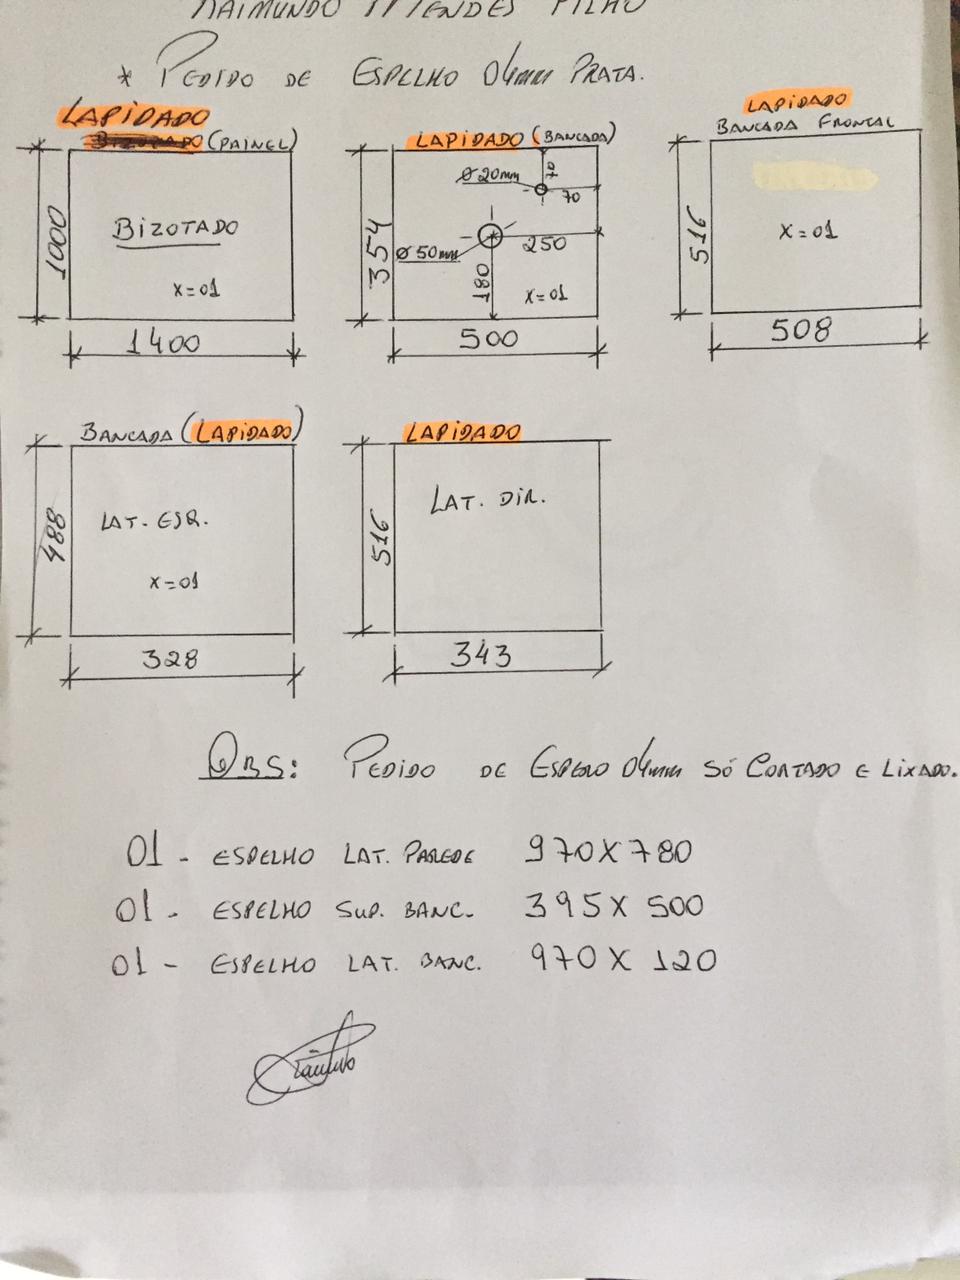 RAIMUNDO MENDES FILHO
* PEDIDO DE ESPELHO 04mm PRATA.
LAPIDADO
(PAINEL)
1000
BIZOTADO
X=01
1400
LAPIDADO (BANCADA)
Ø 20mm
70
70
354
Ø 50mm
250
180
X=01
500
LAPIDADO
BANCADA FRONTAL
516
X=01
508
BANCADA (LAPIDADO)
488
LAT. ESQ.
X=01
328
LAPIDADO
516
LAT. DIR.
343
OBS: PEDIDO DE ESPELO 04mm SÓ CORTADO E LIXADO.
01 - ESPELHO LAT. PAREDE 970X780
01 - ESPELHO SUP. BANC. 395X500
01 - ESPELHO LAT. BANC. 970X120